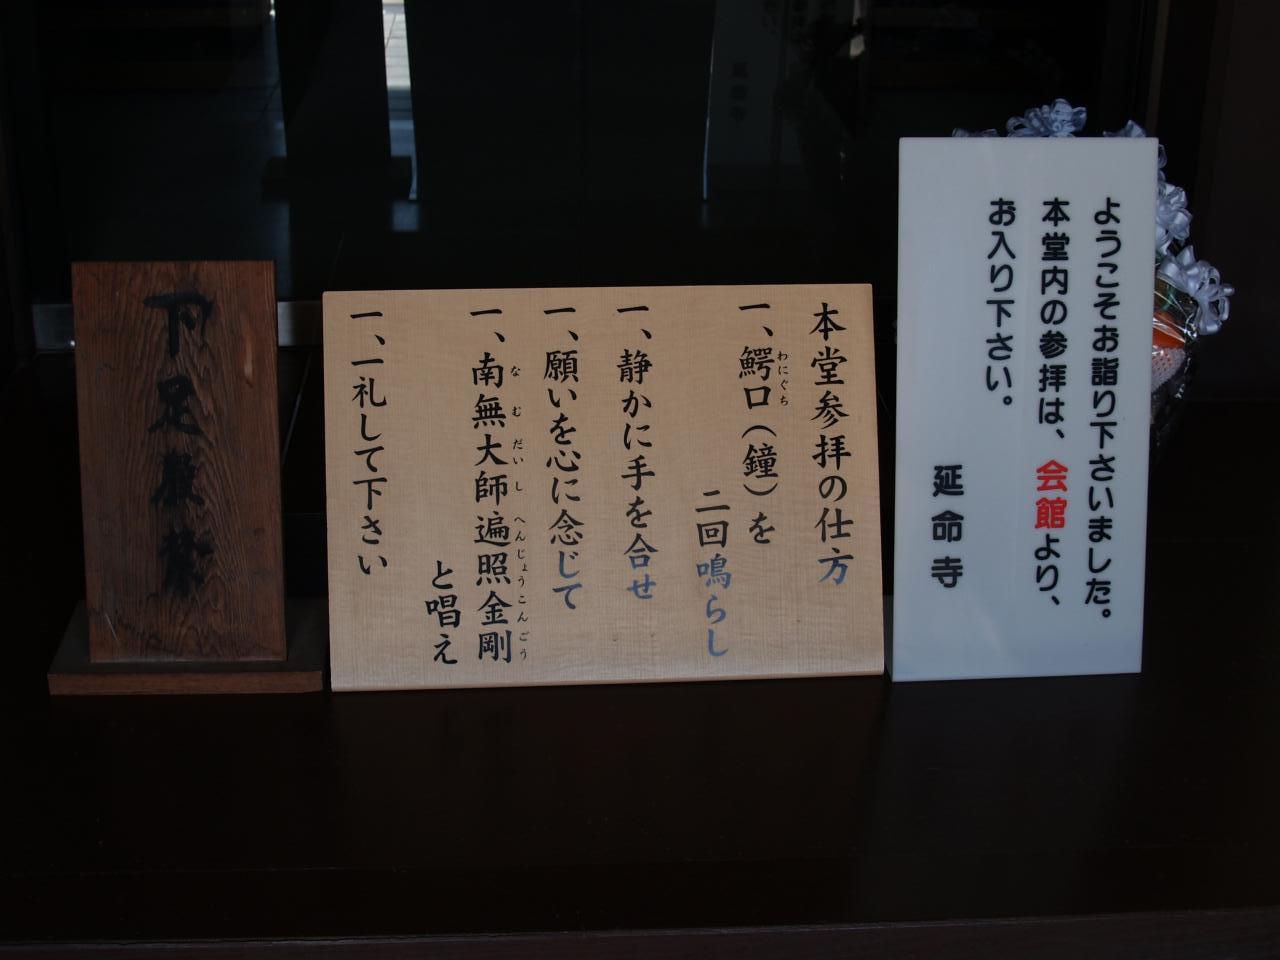 ようこそお詣り下さいました。
本堂内の参拝は、会館より、
お入り下さい。
延命寺
本堂参拝の仕方
一、鰐口(鐘)を
わにぐち
二回鳴らし
一、静かに手を合せ
一、願いを心に念じて
一、南無大師遍照金剛
なむだいしへんじょうこんごう
と唱え
一、一礼して下さい
下足厳禁